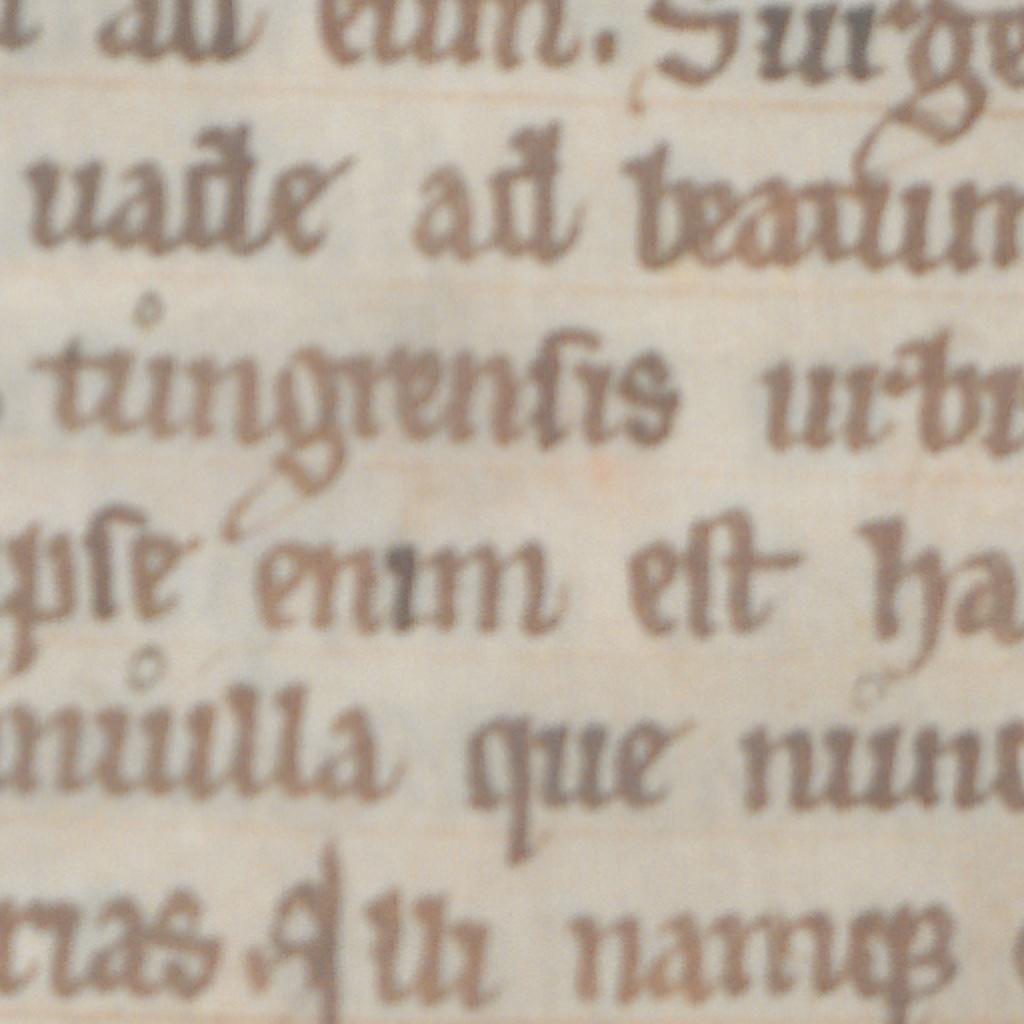 ad eum. Surge
uade ad beatum
tungrensis urbi
ipse enim est ha
nulla que nunc
rias. illi namq;